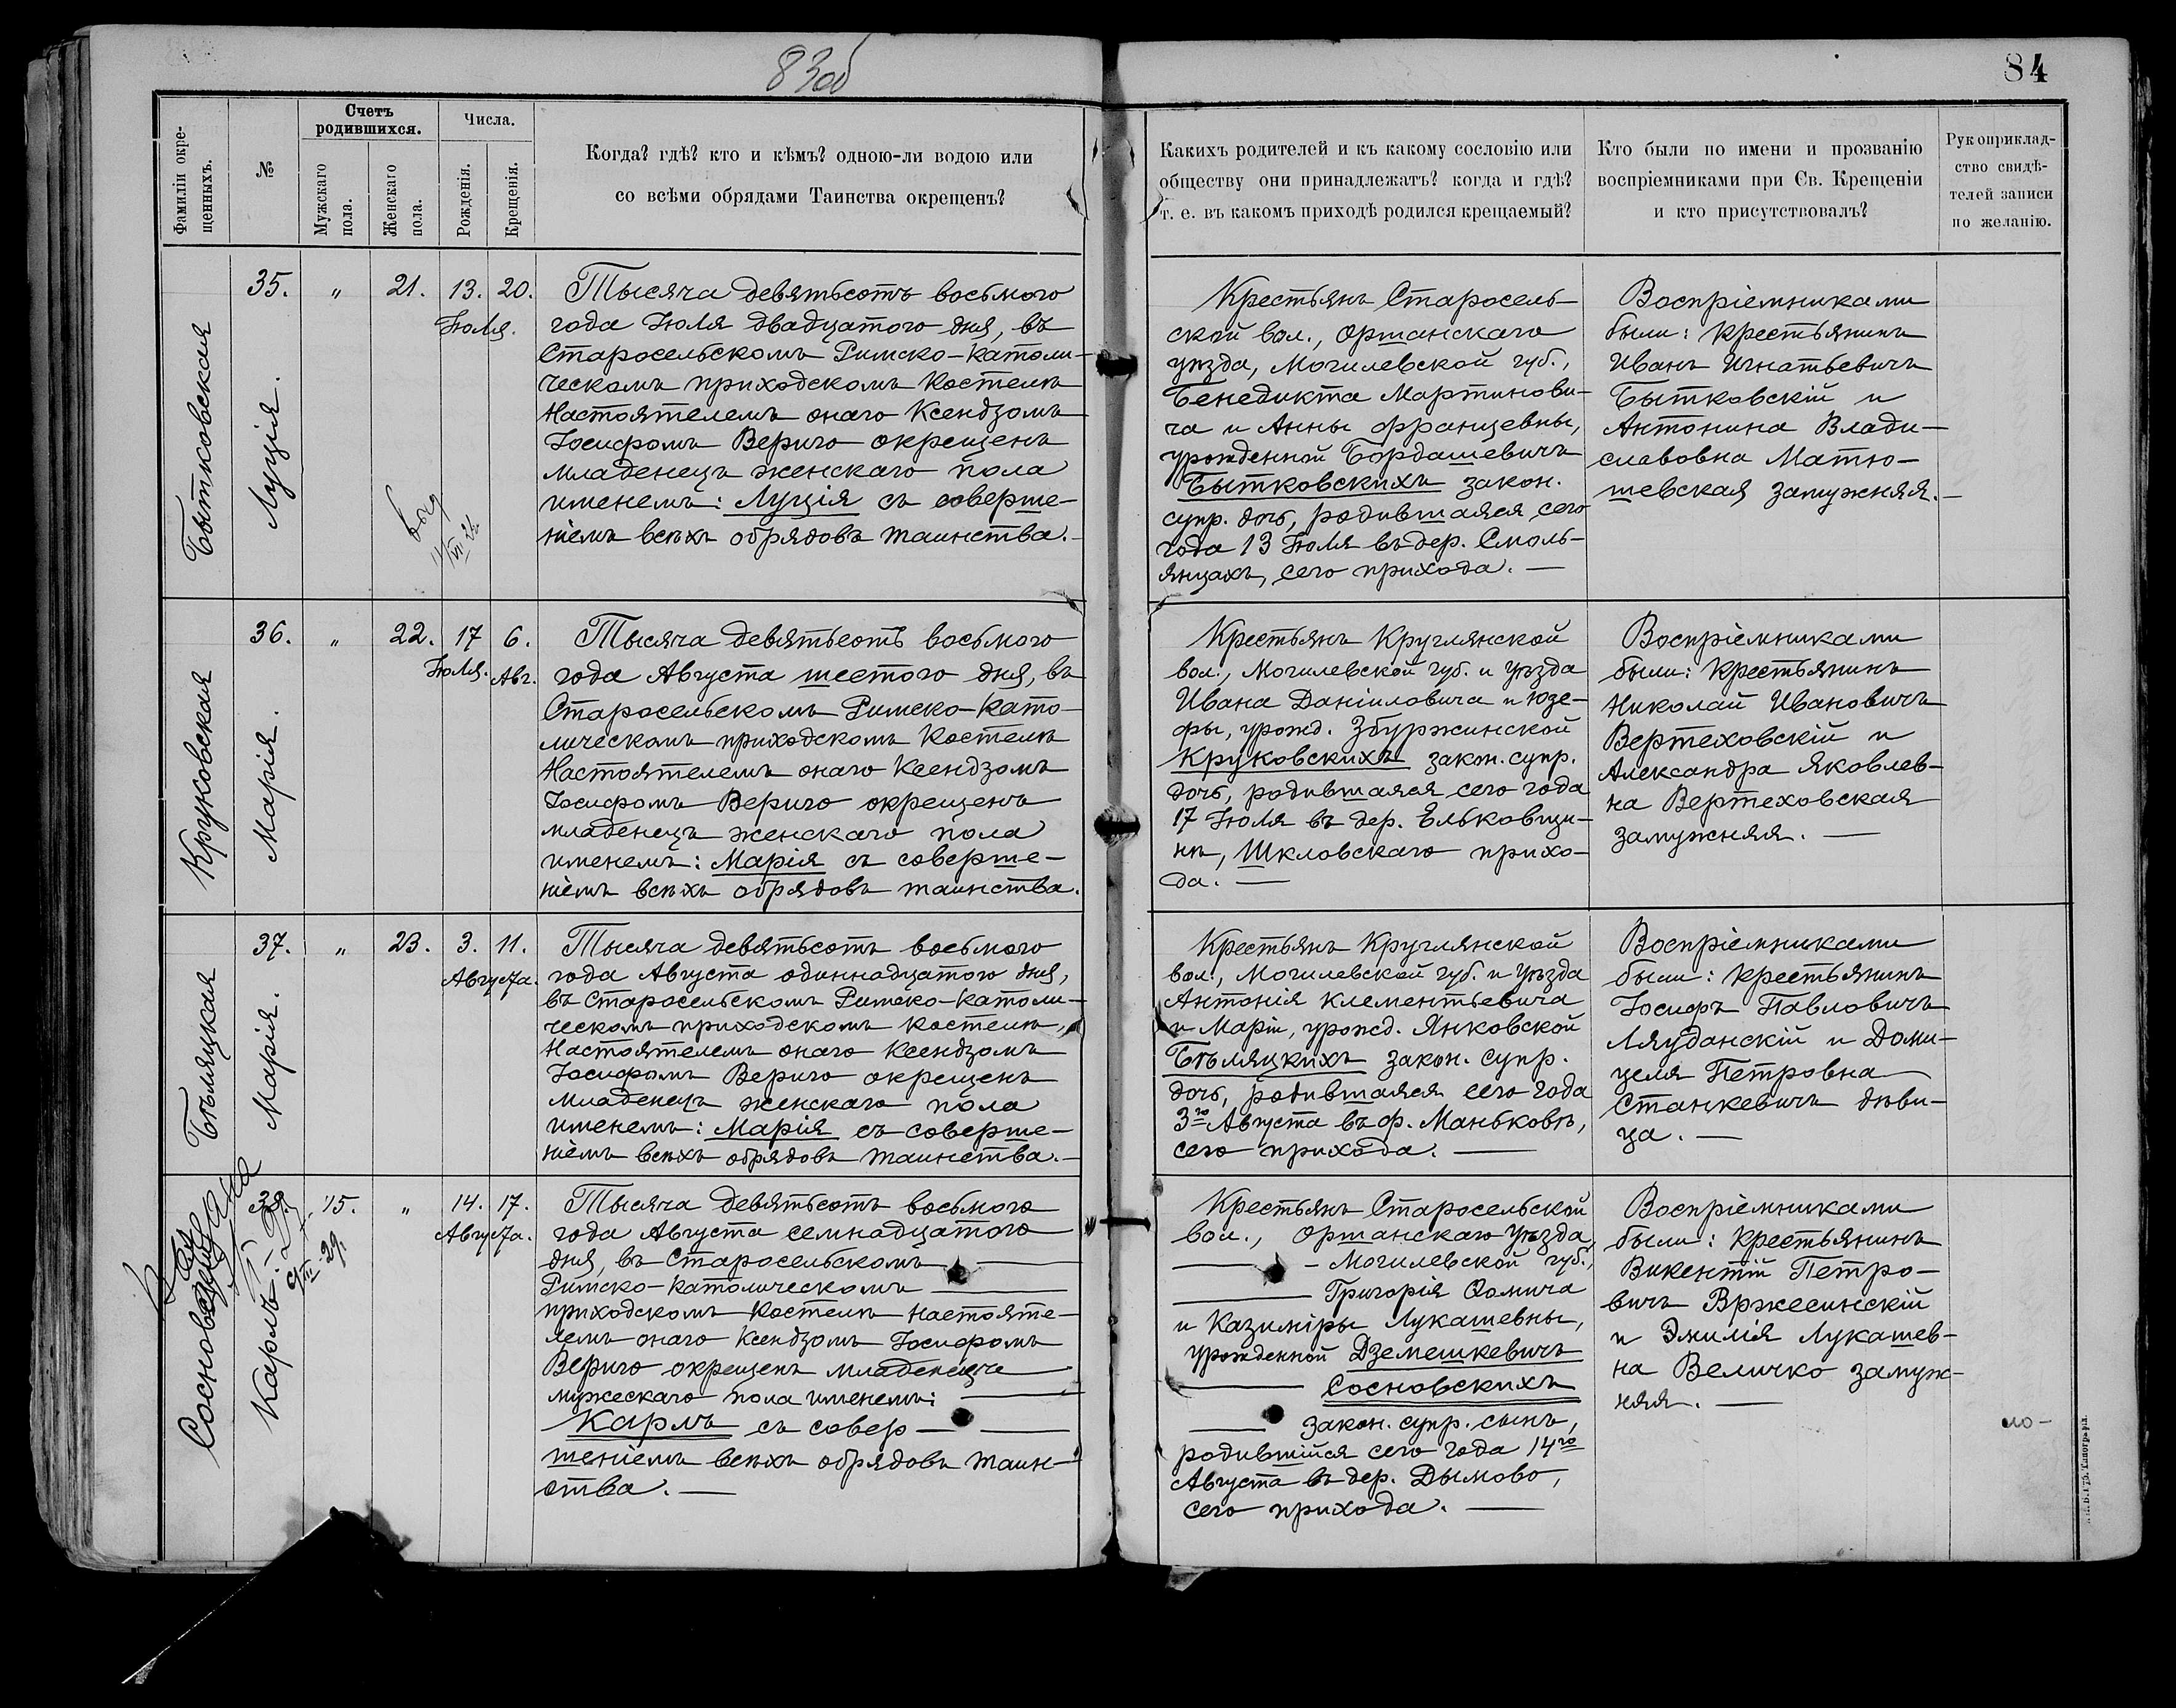 83об
84
Фамиліи окре-
щенныхъ.
№
Счетъ
родившихся.
Мужскаго
пола.
Женскаго
пола.
Числа.
Рожденія.
Крещенія.
Когда? гдѣ? кто и кѣмъ? одною-ли водою или
со всѣми обрядами Таинства окрещенъ?
Какихъ родителей и къ какому сословію или
обществу они принадлежатъ? когда и гдѣ?
т. е. въ какомъ приходѣ родился крещаемый?
Кто были по имени и прозванію
воспріемниками при Св. Крещеніи
и кто присутствовалъ?
Рукоприклад-
ство свидѣ-
телей записи
по желанію.
Бытковская
35.
Луція.
"
21.
13. 20.
Іюля.
Тысяча девятьсотъ восьмого
года Іюля двадцатого дня, въ
Старосельскомъ Римско-католи-
ческомъ приходскомъ костелѣ
Настоятелемъ онаго Ксендзомъ
Іосифомъ Вериго окрещенъ
младенецъ женскаго пола
именемъ: Луція съ соверше-
ніемъ всѣхъ обрядовъ таинства.-
Крестьянъ Старосель-
ской вол., Оршанскаго
уѣзда, Могилевской губ.,
Бенедикта Мартинови-
ча и Анны Францевны,
урожденной Бордашевичъ
Бытковскихъ закон.
супр. дочь, родившаяся сего
года 13 Іюля въ дер. Смоль-
янцахъ, сего прихода. —
Воспріемниками
были: крестьянинъ
Иванъ Игнатьевичъ
Бытковскій и
Антонина Влади-
славовна Матю-
шевская замужняя.-
Круковская
36.
Марія.
"
22.
17 6.
Іюля. Авг.
Тысяча девятьсотъ восьмого
года Августа шестого дня, въ
Старосельскомъ Римско-като-
лическомъ приходскомъ Костелѣ
Настоятелемъ онаго Ксендзомъ
Іосифомъ Вериго окрещенъ
младенецъ женскаго пола
именемъ: Марія съ соверше-
ніемъ всѣхъ обрядовъ таинства.
Крестьянъ Круглянской
вол., Могилевской губ. и уѣзда
Ивана Даніиловича и Юзе-
фы, урожд. Збуржинской
Круковскихъ закон. супр.
дочь, родившаяся сего года
17 Іюля въ дер. Ельковщи-
нѣ, Шкловскаго прихо-
да. —
Воспріемниками
были: крестьянинъ
Николай Ивановичъ
Вертеховскій и
Александра Яковлев-
на Вертеховская
замужняя. —
Бѣляцкая
37.
Марія.
"
23.
3. 11.
Августа.
Тысяча девятьсотъ восьмого
года Августа одиннадцатого дня,
въ Старосельскомъ Римско-католи-
ческомъ приходскомъ костелѣ,
Настоятелемъ онаго Ксендзомъ
Іосифомъ Вериго окрещенъ
младенецъ женскаго пола
именемъ: Марія съ соверше-
ніемъ всѣхъ обрядовъ таинства.-
Крестьянъ Круглянской
вол., Могилевской губ. и уѣзда
Антонія Клементьевича
и Маріи, урожд. Янковской
Бѣляцкихъ закон. супр.
дочь, родившаяся сего года
3го Августа въ ф. Маньковѣ,
сего прихода. —
Воспріемниками
были: крестьянинъ
Іосифъ Павловичъ
Ляуданскій и Доми-
целя Петровна
Станкевичъ дѣви-
ца. —
38.
Карлъ.
15.
"
14. 17.
Августа.
Тысяча девятьсотъ восьмого
года Августа семнадцатого
дня, въ Старосельскомъ
Римско-католическомъ
приходскомъ костелѣ Настояте-
лемъ онаго Ксендзомъ Іосифомъ
Вериго окрещенъ младенецъ
мужескаго пола именемъ:
Карлъ съ совер-
шеніемъ всѣхъ обрядовъ таин-
ства. —
Крестьянъ Старосельской
вол., Оршанскаго уѣзда,
Могилевской губ.,
Григорія Ѳомича
и Казиміры Лукашевны,
урожденной Дземешкевичъ
Сосновскихъ
закон. супр. сынъ,
родившійся сего года 14го
Августа въ дер. Дымово,
сего прихода. —
Воспріемниками
были: крестьянинъ
Викентій Петро-
вичъ Вржесинскій
и Эмилія Лукашев-
на Величко замуж-
няя. —